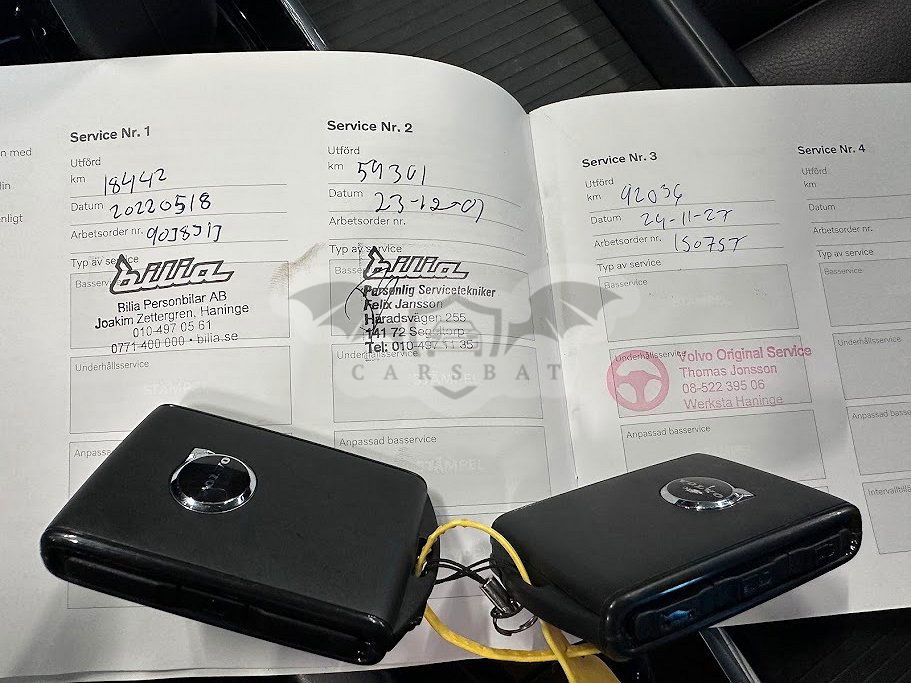 n med
din
enligt
Service Nr. 1
Utförd
km 18442
Datum 20220518
Arbetsorder nr.
Typ av service
Basservice
bilia
Bilia Personbilar AB
Joakim Zettergren, Haninge
010-497 05 61
0771-400 000 • bilia.se
Underhållsservice
STÄMPEL
Anpassad basservice
Service Nr. 2
Utförd
km 59301
Datum 23-12-07
Arbetsorder nr.
Typ av service
bilia
Personlig Servicetekniker
Felix Jansson
Häradsvägen 255
141 72 Segeltorp
Tel: 010-497
Underhållsservice
Anpassad basservice
STÄMPEL
Service Nr. 3
Utförd
km 92036
Datum 24-11-27
Arbetsorder nr. 150757
Typ av service
Basservice
STÄMPEL
Underhållsservice
Volvo Original Service
Thomas Jonsson
08-522 395 06
Werksta Haninge
Anpassad basservice
Service Nr. 4
Utförd
km
Datum
Arbetsorder nr.
Typ av service
Basservice
Underhållsservice
Anpassad bass
Intervallbila
CARSBAT
VOLVO
VOLVO